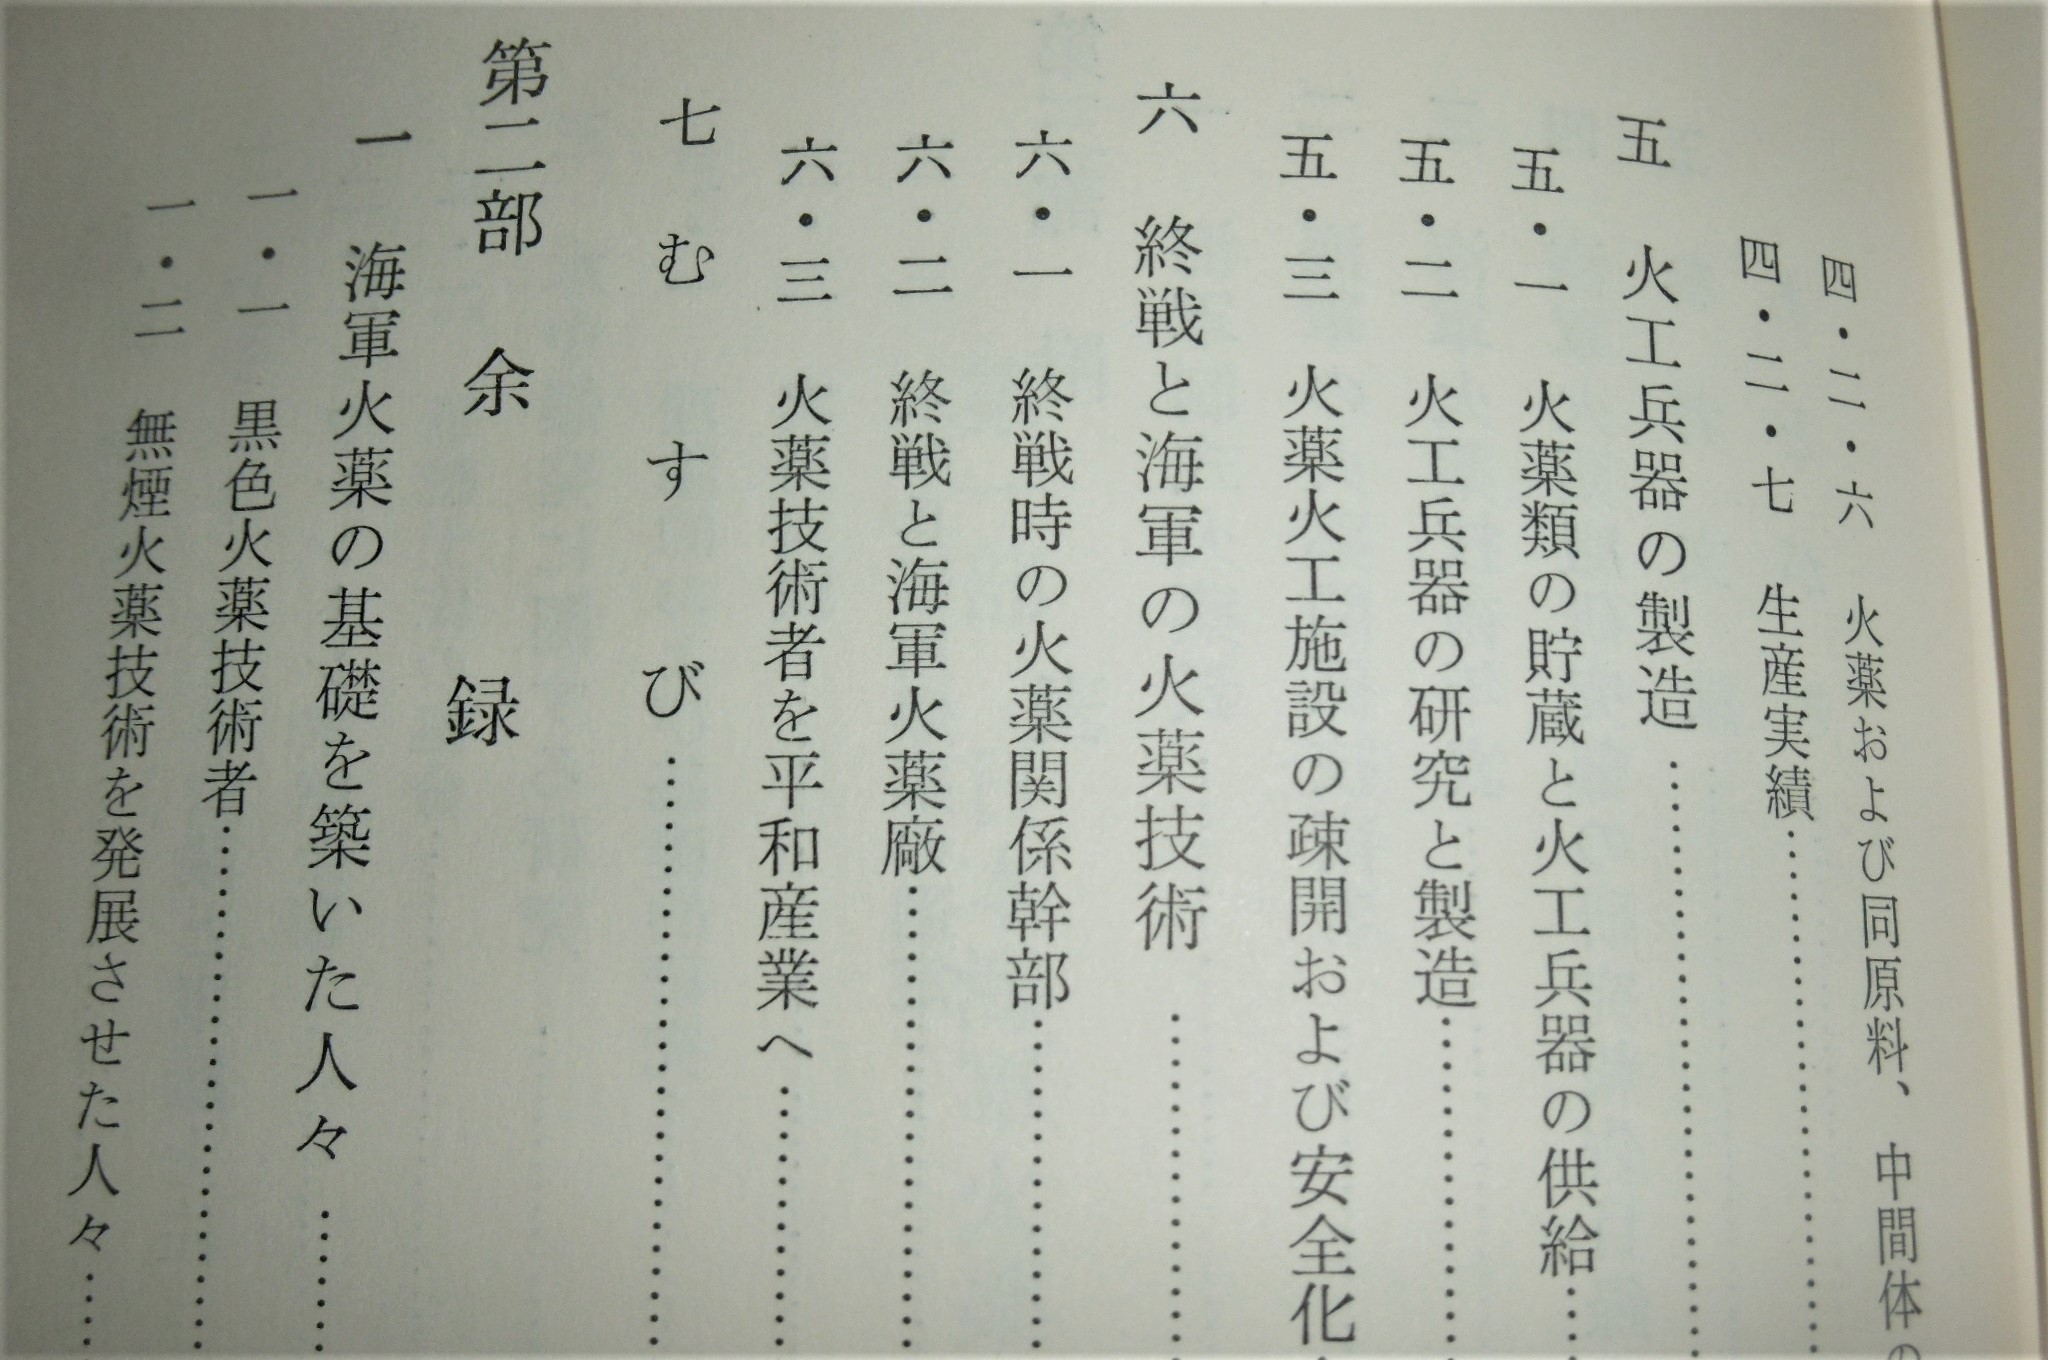 四・二・六　火薬および同原料、中間体の
四・二・七　生産実績……………
五　火工兵器の製造……………
五・一　火薬類の貯蔵と火工兵器の供給……
五・二　火工兵器の研究と製造……………
五・三　火薬火工施設の疎開および安全化…
六　終戦と海軍の火薬技術……………
六・一　終戦時の火薬関係幹部……………
六・二　終戦と海軍火薬廠……………
六・三　火薬技術者を平和産業へ……………
七　むすび……………
第二部　余録
一　海軍火薬の基礎を築いた人々……
一・一　黒色火薬技術者……………
一・二　無煙火薬技術を発展させた人々……